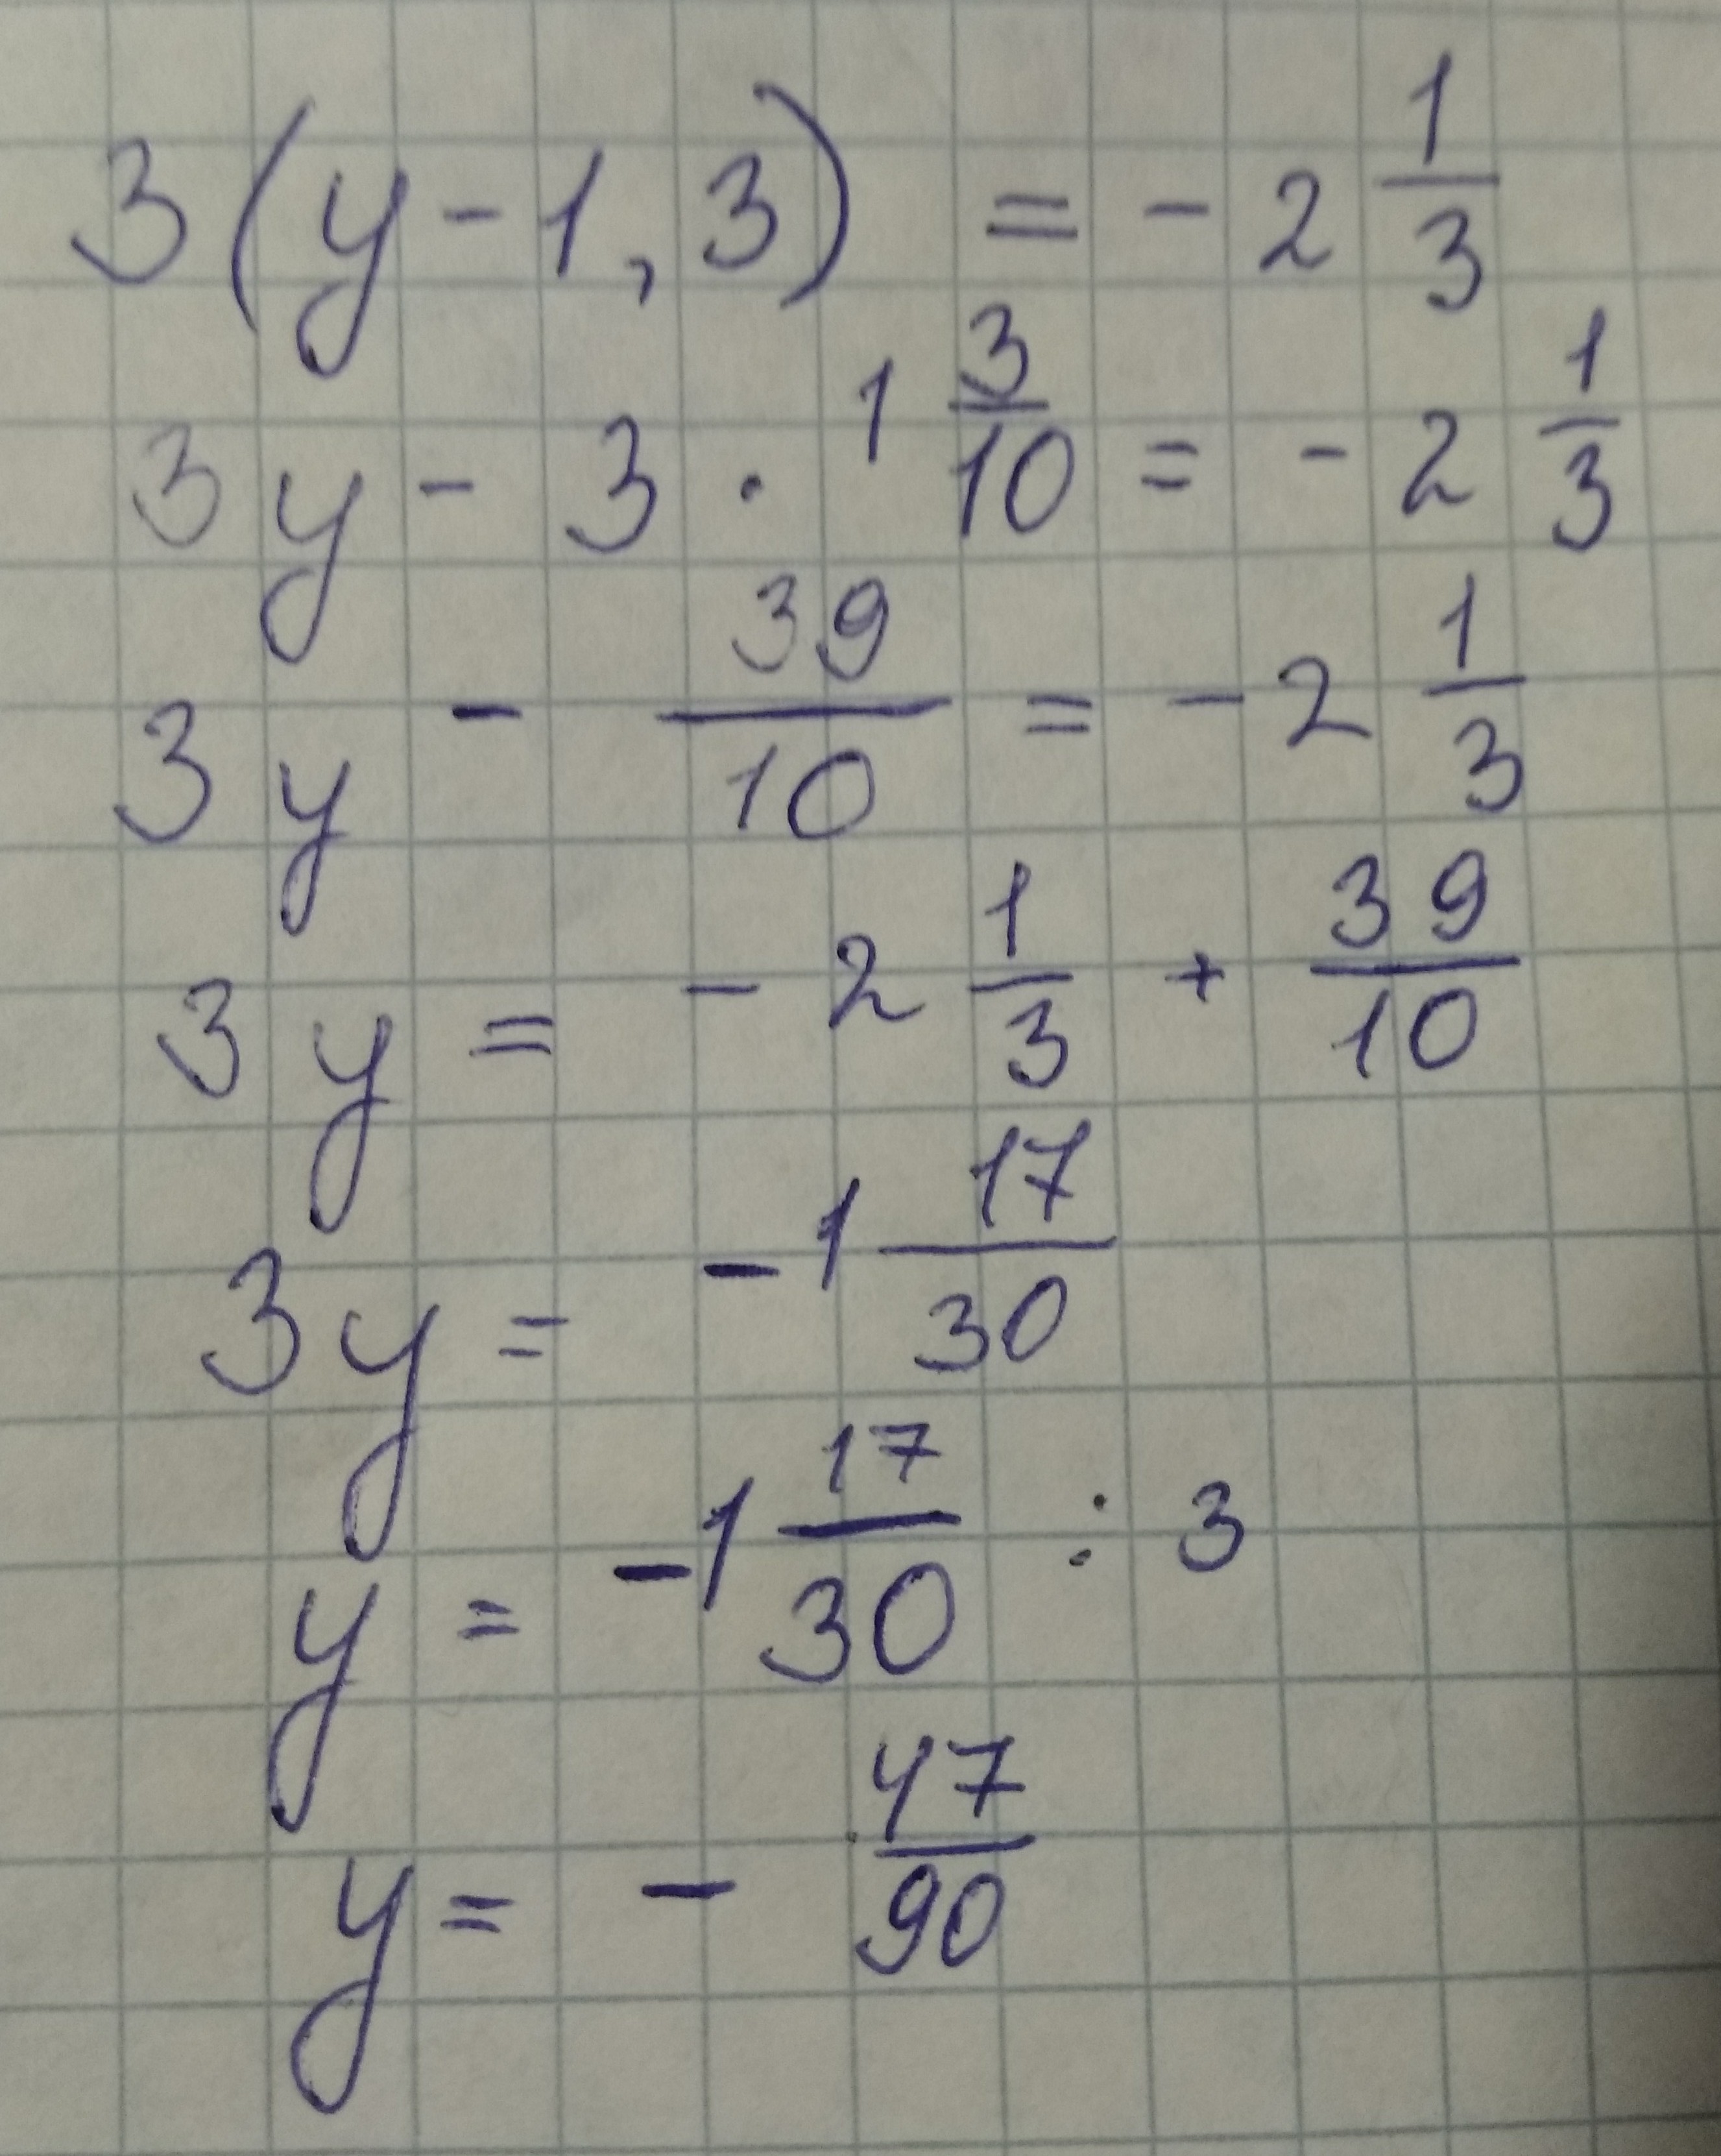 3(y-1,3) = -2 1/3
3y - 3 · 1 3/10 = -2 1/3
3y - 39/10 = -2 1/3
3y = -2 1/3 + 39/10
3y = -1 17/30
y = -1 17/30 : 3
y = - 47/90